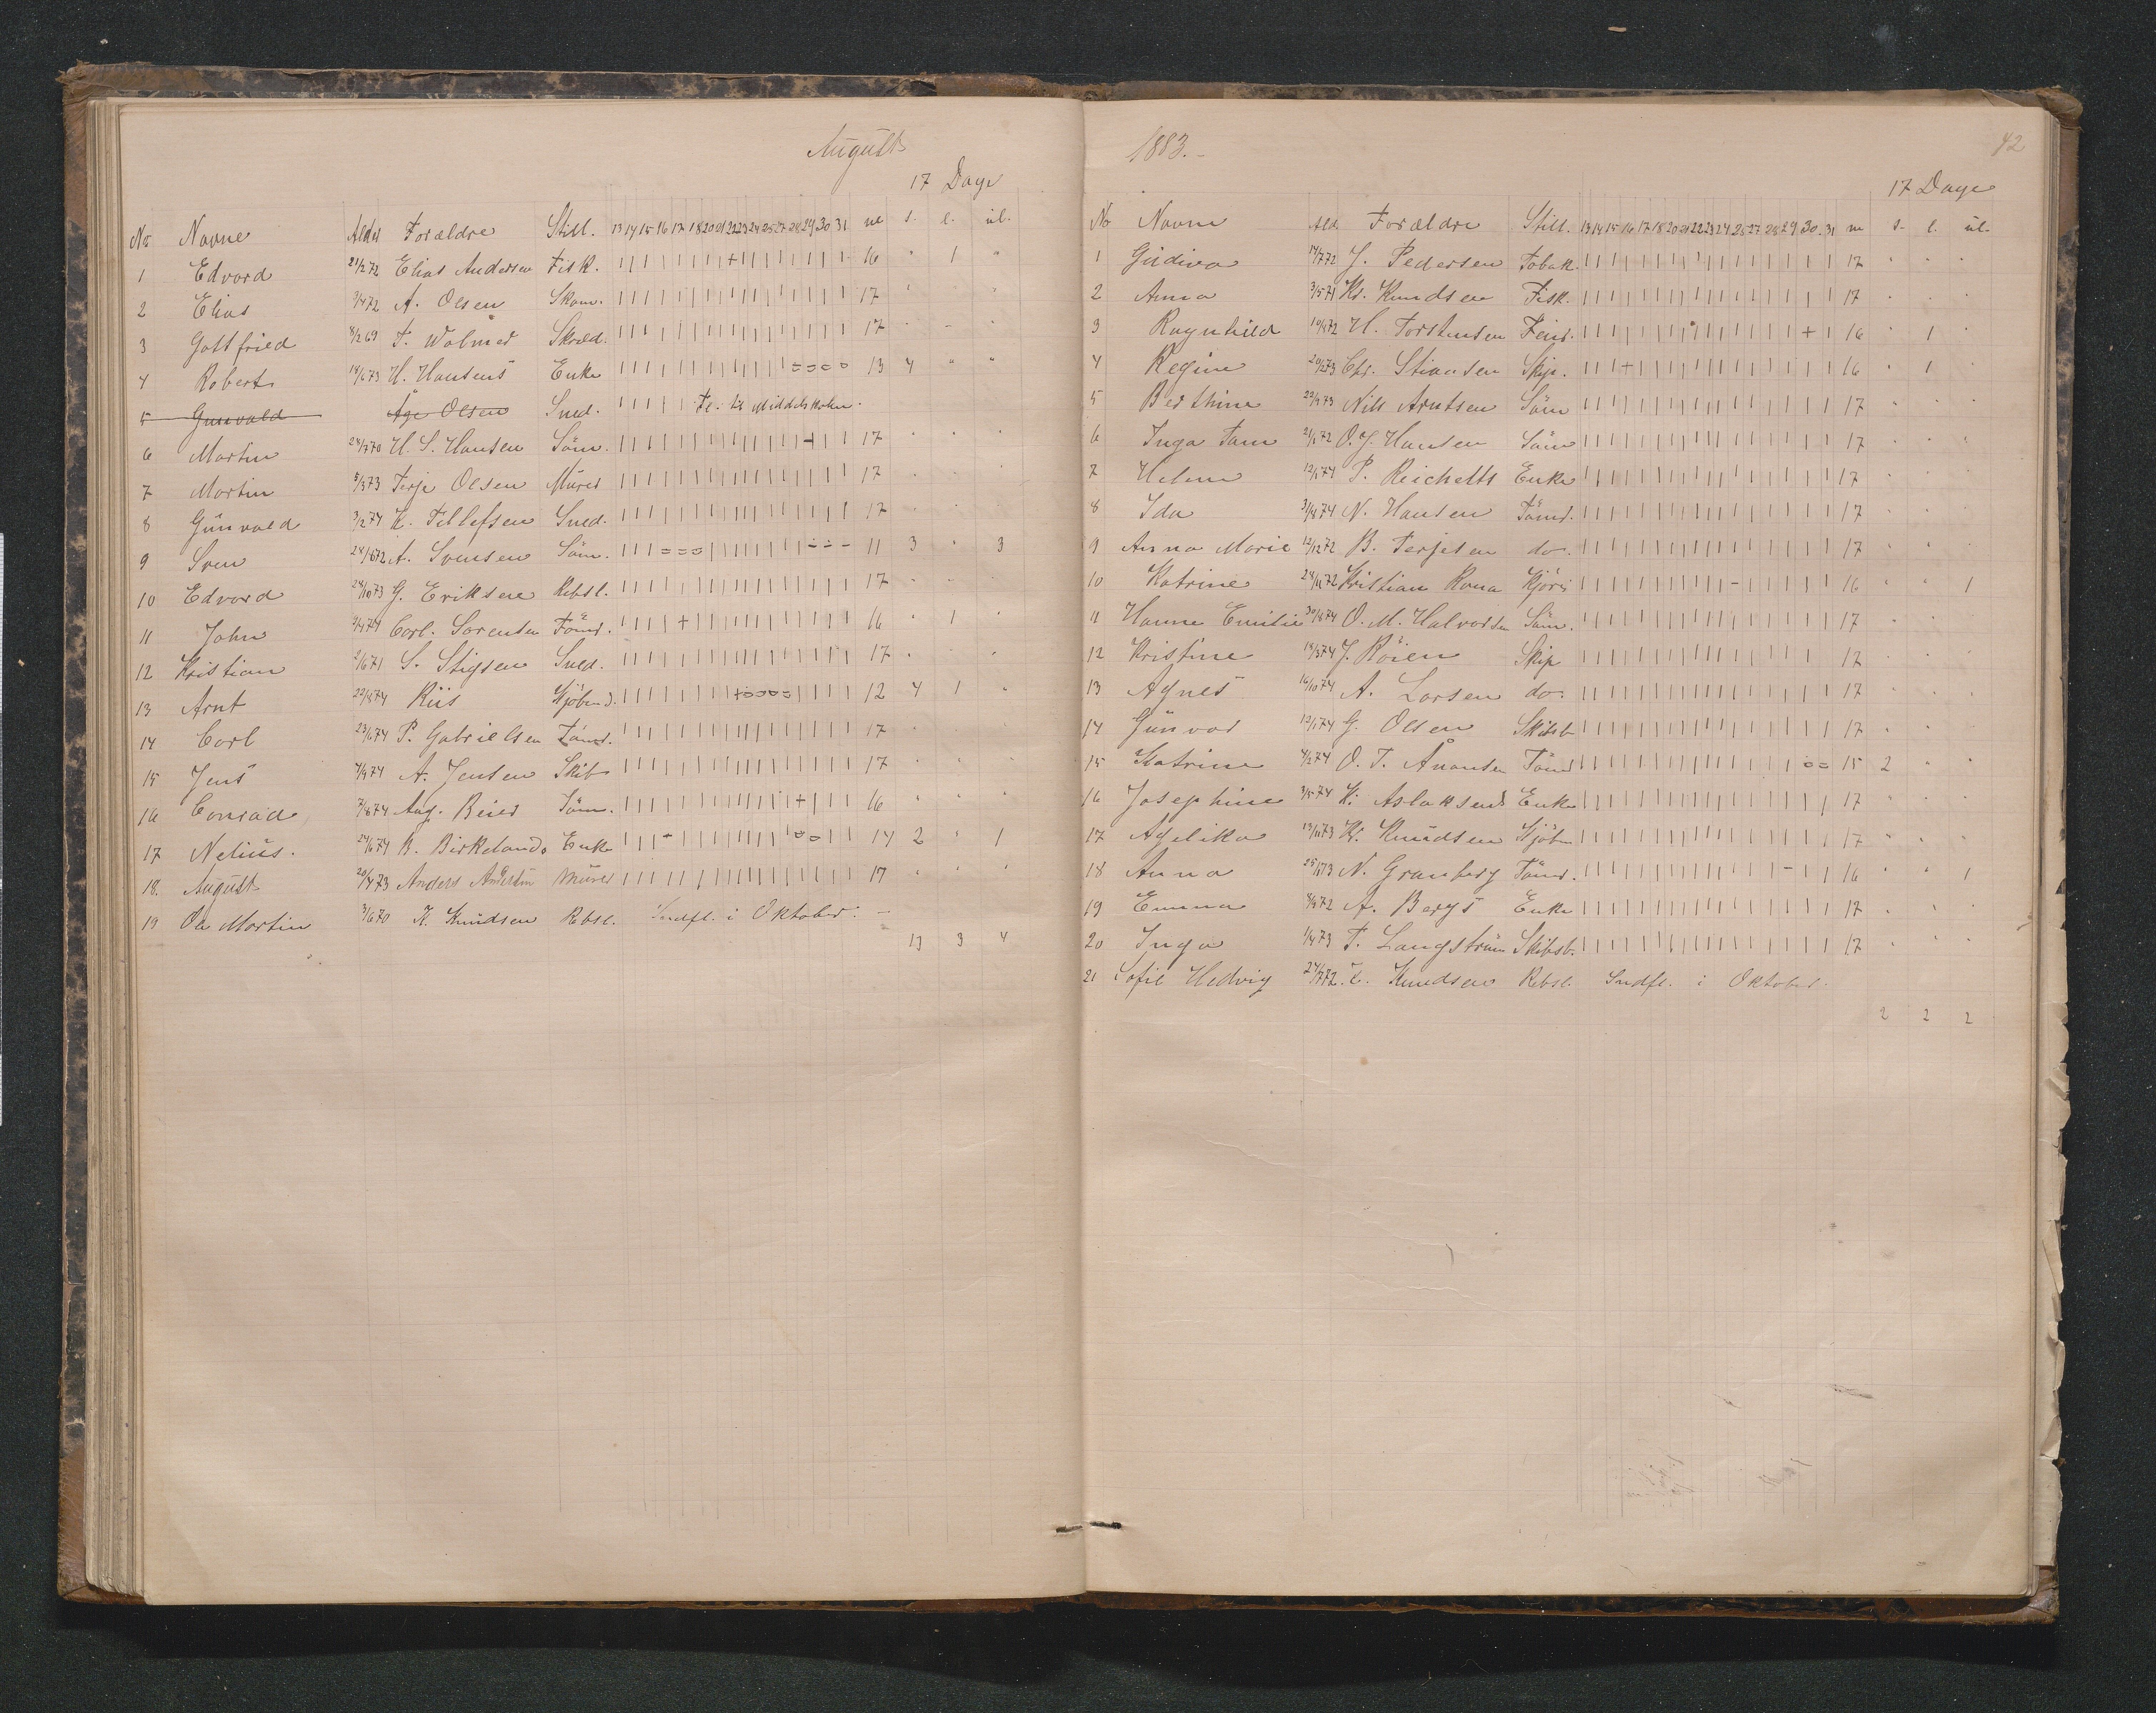 August
17 Dage
No Navne Alder Forældre Still. 13 14 15 16 17 18 20 21 22 23 24 25 27 28 29 30 31 m s. l. ul.
1 Edvard 21/2 72 Elias Andersen Fisk. 16 " 1 "
2 Elias 3/4 72 A. Olsen Skom. 17
3 Gottfried 8/2 69 F. Wolmer Skræd. 17
4 Robert 14/6 73 H. Hansens Enke 13 4 " "
5 Gunvald Åge Olsen Sned. Fl. til Middelskolen.
6 Martin 24/7 70 H. S. Hansen Söm. 17
7 Martin 5/3 73 Terje Olsen Murer 17
8 Gunvald 3/2 74 K. Tellefsen Sned. 17
9 Sven 24/6 72 A. Svensen Söm. 11 3 " 3
10 Edvard 24/10 73 G. Eriksen Rebsl. 17
11 John 2/4 74 Carl. Sorensen Tömr. 16 " 1 "
12 Kristian 2/6 71 S. Stigsen Sned. 17
13 Arnt 22/5 74 Riis Kjöbmd. 12 4 1 "
14 Carl 23/6 74 P. Gabrielsen Tömr. 17
15 Jens 4/9 74 A. Jensen Skib 17
16 Conrad 7/8 74 Aug. Beier Söm. 16
17 Nelius. 24/6 74 B. Birkelands Enke 14 2 " 1
18. August 20/4 73 Anders Murer 17
19 Ole Martin 3/6 70 K. Knudsen Rebsl. Indfl. i Oktober.
13 3 4
1883.
42
17 Dage
No Navne Ald. Forældre Still. 13 14 15 16 17 18 20 21 22 23 24 25 27 28 29 30 31 m s. l. ul.
1 Gudiva 14/7 72 J. Pedersen Tobak. 17
2 Anna 3/5 71 Kr. Knudsen Fisk. 17
3 Ragnhild 10/4 72 H. Torstensen 16 " 1 "
4 Regine 20/12 73 Chr. Stiansen Skip. 16 " 1 "
5 Berthine 22/4 73 Nils Arntsen Söm 17
6 Inga Tam 2/6 72 O. J. Hansen Söm 17
7 Helene 12/1 74 P. Reichelts Enke 17
8 Ida 31/8 74 N. Hansen Tömr. 17
9 Anna Marie 12/12 72 B. Terjesen do. 17
10 Katrine 24/11 72 Kristian Rona Kjörer 16 " " 1
11 Hanne Emilie 30/8 74 O. M. Halvorsen Söm. 17
12 Kristine 18/3 74 J. Röien Skip 17
13 Agnes 16/10 74 A. Larsen do. 17
14 Gunvor 12/1 74 G. Olsen Skibsb 17
15 Katrine 4/2 74 O. T. Ånonsen Tömr 15 2 " "
16 Josephine 3/5 74 K. Aslaksens Enke 17
17 Agelika 13/11 73 Kr. Knudsen Kjöbm 17
18 Anna 25/1 73 N. Granberg Tömr. 16 " " 1
19 Emma 4/9 72 A. Bergs Enke 17
20 Inga 1/4 73 T. Langström Skibsb. 17
21 Sofie Hedvig 24/7 72 C. Knudsen Rebsl. Indfl. i Oktober.
2 2 2